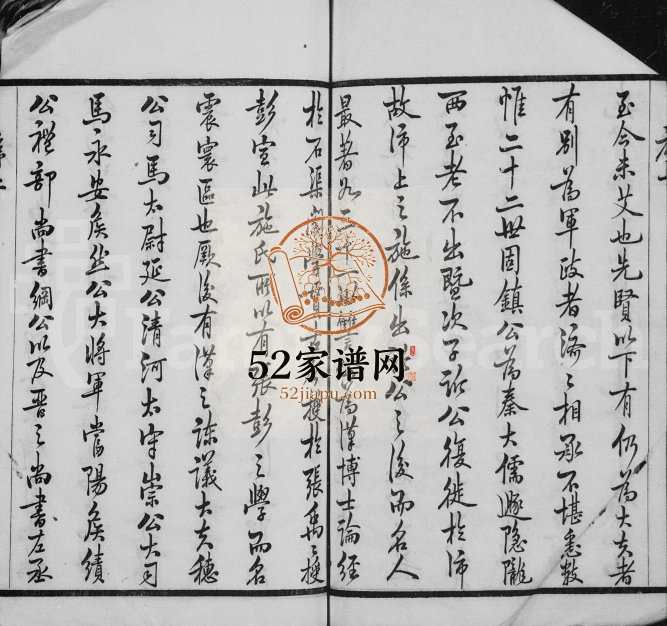 至今未艾也先賢以下有仍為大夫者
有別為軍政者濟々相承不堪悉數
惟二十二世固鎮公為秦大儒遯隱隴
西至老不出暨次子訢公復徙於沛
故沛上之施係出公之後而名人
最著如二十一讎為漢博士論經
於石渠學授於張禹々授
彭宣此施氏所以有張彭之學而名
震寰區也厥後有漢之諫議大夫穗
公司馬太尉延公清河太守崇公大司
馬永安侯丞公大將軍當陽侯績
公禮部尚書綱公以及晉之尚書左丞
序二
52家谱网
52jiapu.com